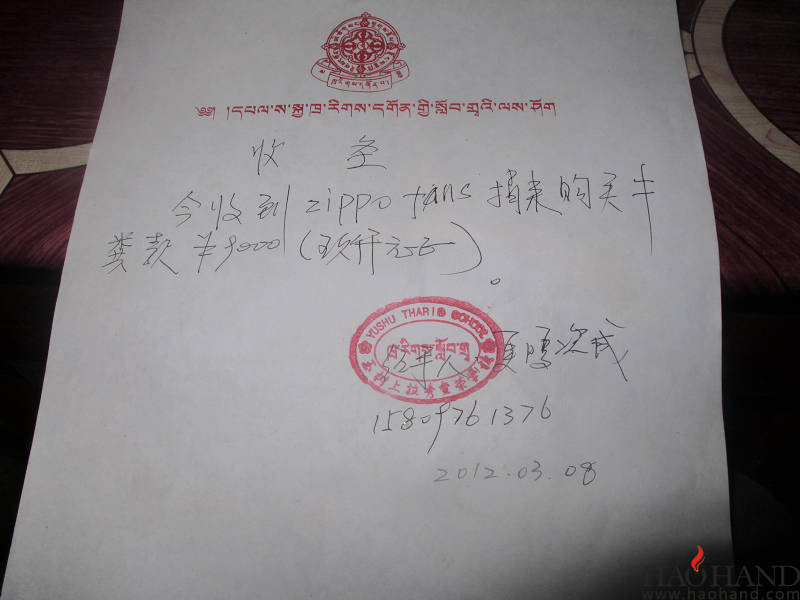 ༄༅། །དཔལ་ས་སྐྱ་ཁྲ་རིགས་དགོན་གྱི་སློབ་གྲྭའི་ལས་ཤོག
收 至
今收到 zippo fans 捐来购买牛
粪款 ¥9000 (玖仟元正)。
YUSHU THARIG SCHOOL
ཁྲ་རིགས་སློབ་གྲྭ
玉树上拉秀食宿学校
经手人
15809761376
2012.03.08
HAOHAND
www.haohand.com